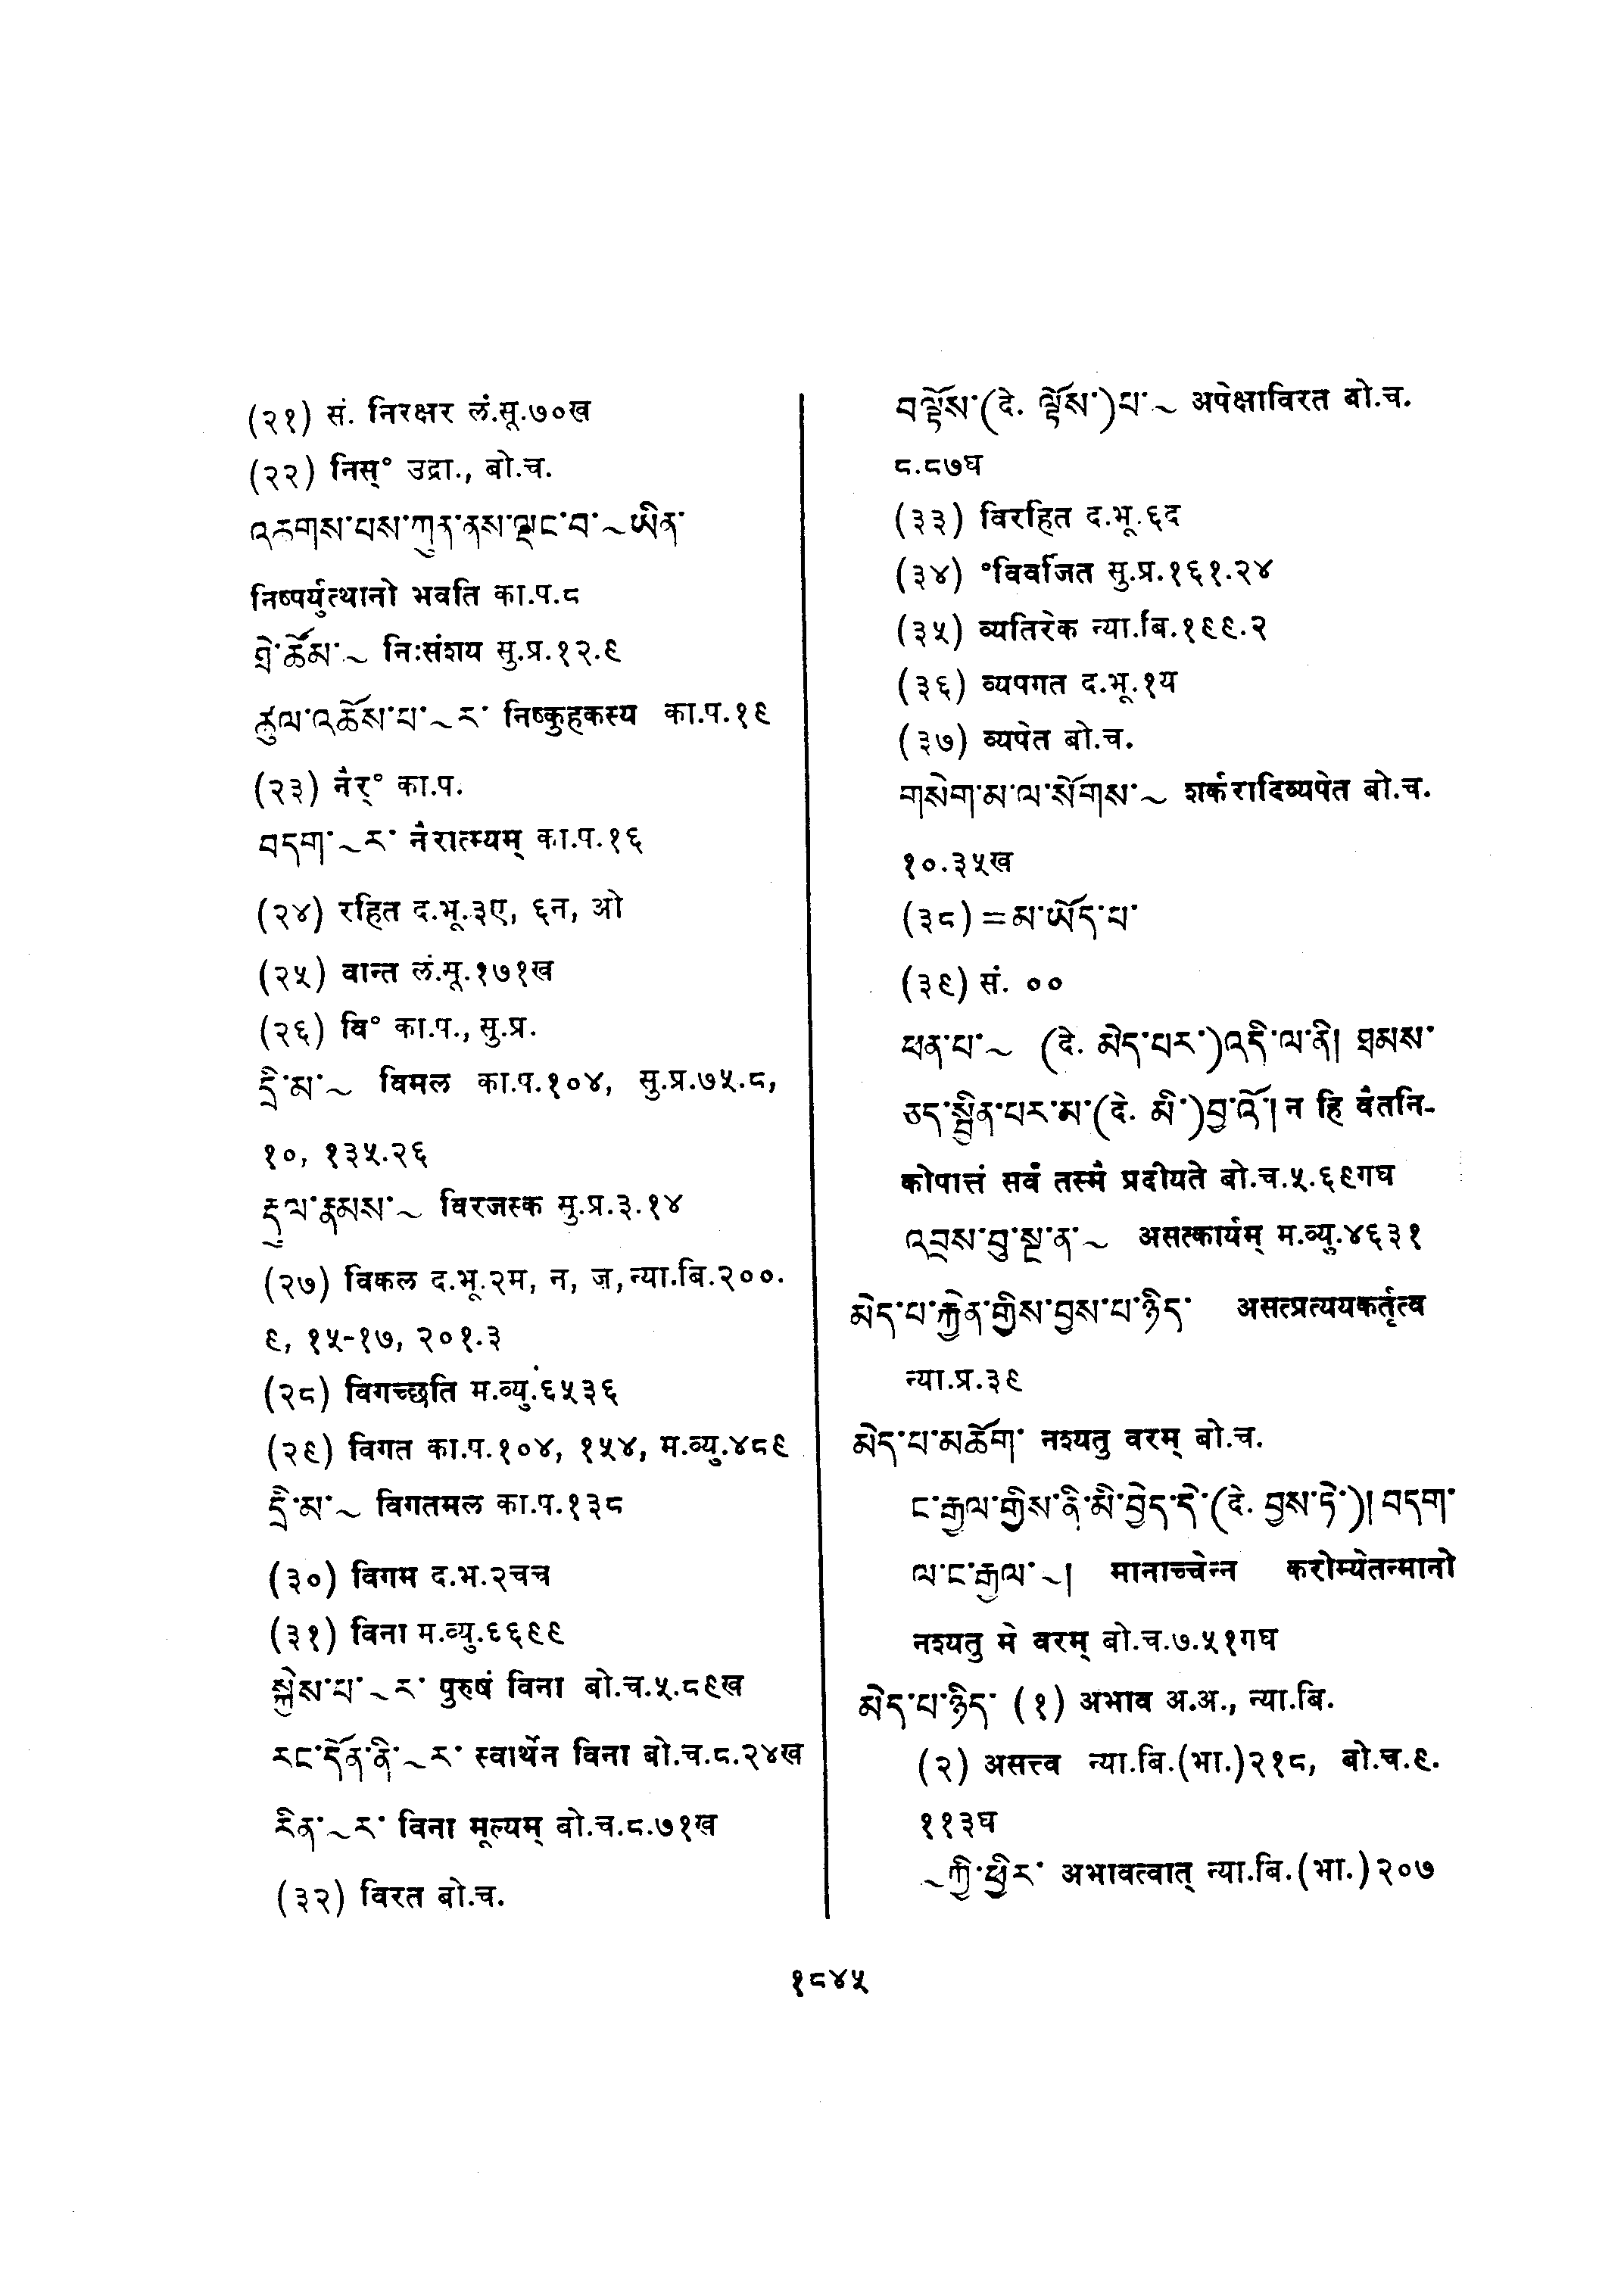 (२१) सं. निरक्षर लं.सू.७०ख
(२२) निस्° उद्रा., बो.च.
འཆགས་པས་ཀུན་ནས་ལྡང་བ་~ཡིན་
निष्पर्युत्थानो भवति का.प.८
ཐེ་ཚོམ་~ निःसंशय सु.प्र.१२.९
ཚུལ་འཆོས་པ་~ར་ निष्कुहकस्य का.प.१९
(२३) नैर्° का.प.
བདག་~ར་ नैरात्म्यम् का.प.१६
(२४) रहित द.भू.३ए, ६न, ओ
(२५) वान्त लं.सू.१७१ख
(२६) वि° का.प., सु.प्र.
དྲི་མ་~ विमल का.प.१०४, सु.प्र.७५.८,
१०, १३५.२६
རྡུལ་རྣམས་~ विरजस्क सु.प्र.३.१४
(२७) विकल द.भू.२म, न, ज, न्या.बि.२००.
९, १५-१७, २०१.३
(२८) विगच्छति म.व्यु.६५३६
(२९) विगत का.प.१०४, १५४, म.व्यु.४८९
དྲི་མ་~ विगतमल का.प.१३८
(३०) विगम द.भ.२चच
(३१) विना म.व्यु.६६९९
སྐྱེས་པ་~ར་ पुरुषं विना बो.च.५.८९ख
རང་དོན་ནི་~ར་ स्वार्थेन विना बो.च.८.२४ख
རིན་~ར་ विना मूल्यम् बो.च.८.७१ख
(३२) विरत बो.च.
བལྟོས་(दे. ལྟོས་)པ་~ अपेक्षाविरत बो.च.
८.८७घ
(३३) विरहित द.भू.६द
(३४) °विवर्जित सु.प्र.१६१.२४
(३५) व्यतिरेक न्या.बि.१९९.२
(३६) व्यपगत द.भू.१य
(३७) व्यपेत बो.च.
གསེག་མ་ལ་སོགས་~ शर्करादिव्यपेत बो.च.
१०.३५ख
(३८) =མ་ཡོད་པ་
(३९) सं. ००
ཕན་པ་~ (दे. མེད་པར་)འདི་ལ་ནི། ཐམས་
ཅད་སྦྱིན་པར་མ་(दे. མི་)བྱ་འོ། न हि वैतनि-
कोपात्तं सर्वं तस्मै प्रदीयते बो.च.५.६९गघ
འབྲས་བུ་སྔ་ན་~ असत्कार्यम् म.व्यु.४६३१
མེད་པ་རྐྱེན་གྱིས་བྱས་པ་ཉིད་ असत्प्रत्ययकर्तृत्व
न्या.प्र.३९
མེད་པ་མཆོག་ नश्यतु वरम् बो.च.
ང་རྒྱལ་གྱིས་ནི་མི་བྱེད་དེ་(दे. བྱས་ཏེ་)། བདག་
ལ་ང་རྒྱལ་~། मानाच्चेन्न करोम्येतन्मानो
नश्यतु मे वरम् बो.च.७.५१गघ
མེད་པ་ཉིད་ (१) अभाव अ.अ., न्या.बि.
(२) असत्त्व न्या.बि.(भा.)२१८, बो.च.९.
११३घ
~ཀྱི་ཕྱིར་ अभावत्वात् न्या.बि.(भा.)२०७
१८४५